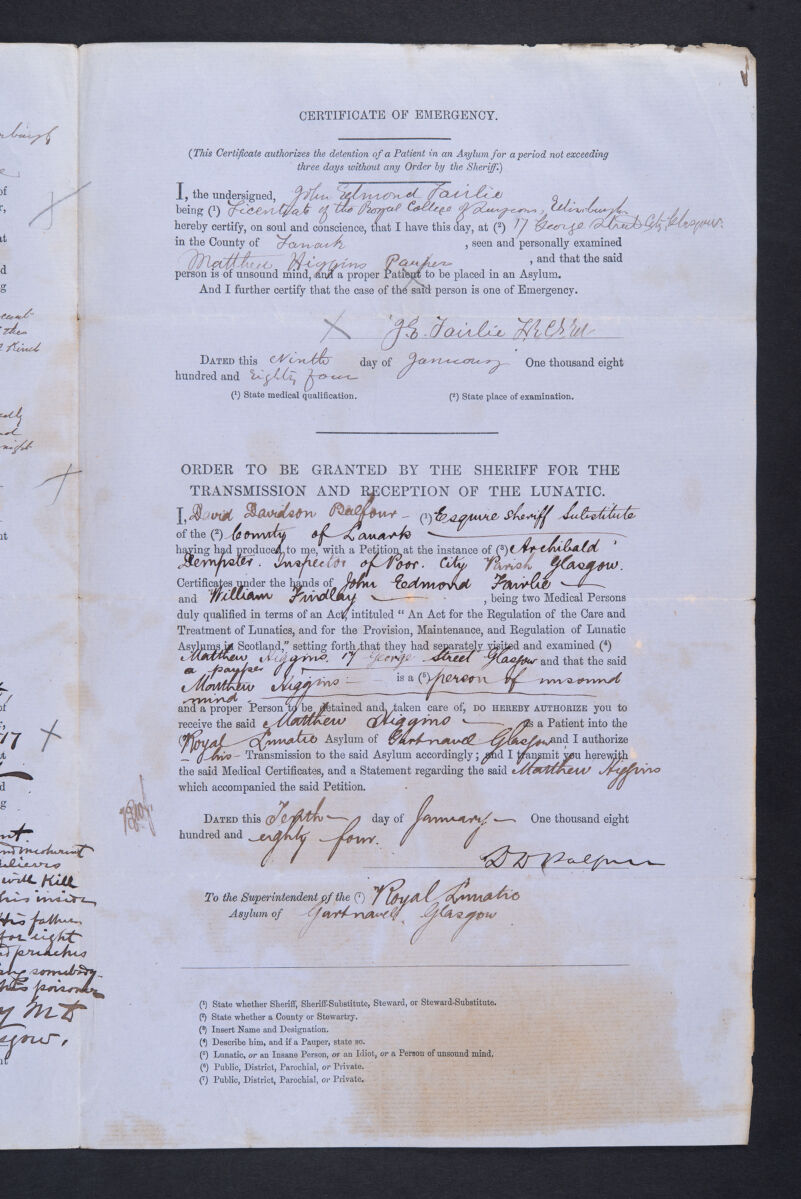 CERTIFICATE OF EMERGENCY.
(This Certificate authorizes the detention of a Patient in an Asylum for a period not exceeding
three days without any Order by the Sheriff.)
I, the undersigned, John Edmond Fairlie
being (1) Licentiate of the Royal College of Surgeons, Edinburgh
hereby certify, on soul and conscience, that I have this day, at (2) 17 George Street City, Glasgow.
in the County of Lanark, seen and personally examined
Matthew Higgins Pauper, and that the said
person is of unsound mind, and a proper Patient to be placed in an Asylum.
And I further certify that the case of the said person is one of Emergency.
J. E. Fairlie
DATED this Ninth day of January One thousand eight
hundred and Eighty four
(1) State medical qualification. (2) State place of examination.
ORDER TO BE GRANTED BY THE SHERIFF FOR THE
TRANSMISSION AND RECEPTION OF THE LUNATIC.
I, David Davidson Balfour — (1) Esquire Sheriff Substitute
of the (2) County of Lanark
having had produced to me, with a Petition at the instance of (3) Archibald
Dempster. Inspector of Poor. City Parish Glasgow.
Certificates under the hands of John Edmond Fairlie —
and William Findlay —, being two Medical Persons
duly qualified in terms of an Act, intituled "An Act for the Regulation of the Care and
Treatment of Lunatics, and for the Provision, Maintenance, and Regulation of Lunatic
Asylums in Scotland," setting forth that they had separately visited and examined (4)
Matthew Higgins. 17 George Street Glasgow and that the said
a pauper
Matthew Higgins — is a (5) person of unsound
mind
and a proper Person to be detained and taken care of, DO HEREBY AUTHORIZE you to
receive the said Matthew Higgins — as a Patient into the
(6) Royal Lunatic Asylum of Gartnavel Glasgow and I authorize
— his — Transmission to the said Asylum accordingly; and I transmit you herewith
the said Medical Certificates, and a Statement regarding the said Matthew Higgins
which accompanied the said Petition.
DATED this Tenth — day of January. — One thousand eight
hundred and eighty four.
D D Balfour
To the Superintendent of the (7) Royal Lunatic
Asylum of Gartnavel. Glasgow
(1) State whether Sheriff, Sheriff-Substitute, Steward, or Steward-Substitute.
(2) State whether a County or Stewartry.
(3) Insert Name and Designation.
(4) Describe him, and if a Pauper, state so.
(5) Lunatic, or an Insane Person, or an Idiot, or a Person of unsound mind.
(6) Public, District, Parochial, or Private.
(7) Public, District, Parochial, or Private.
will Kill
his inside
His father
for eight
preaches
somebody.
poison
M D